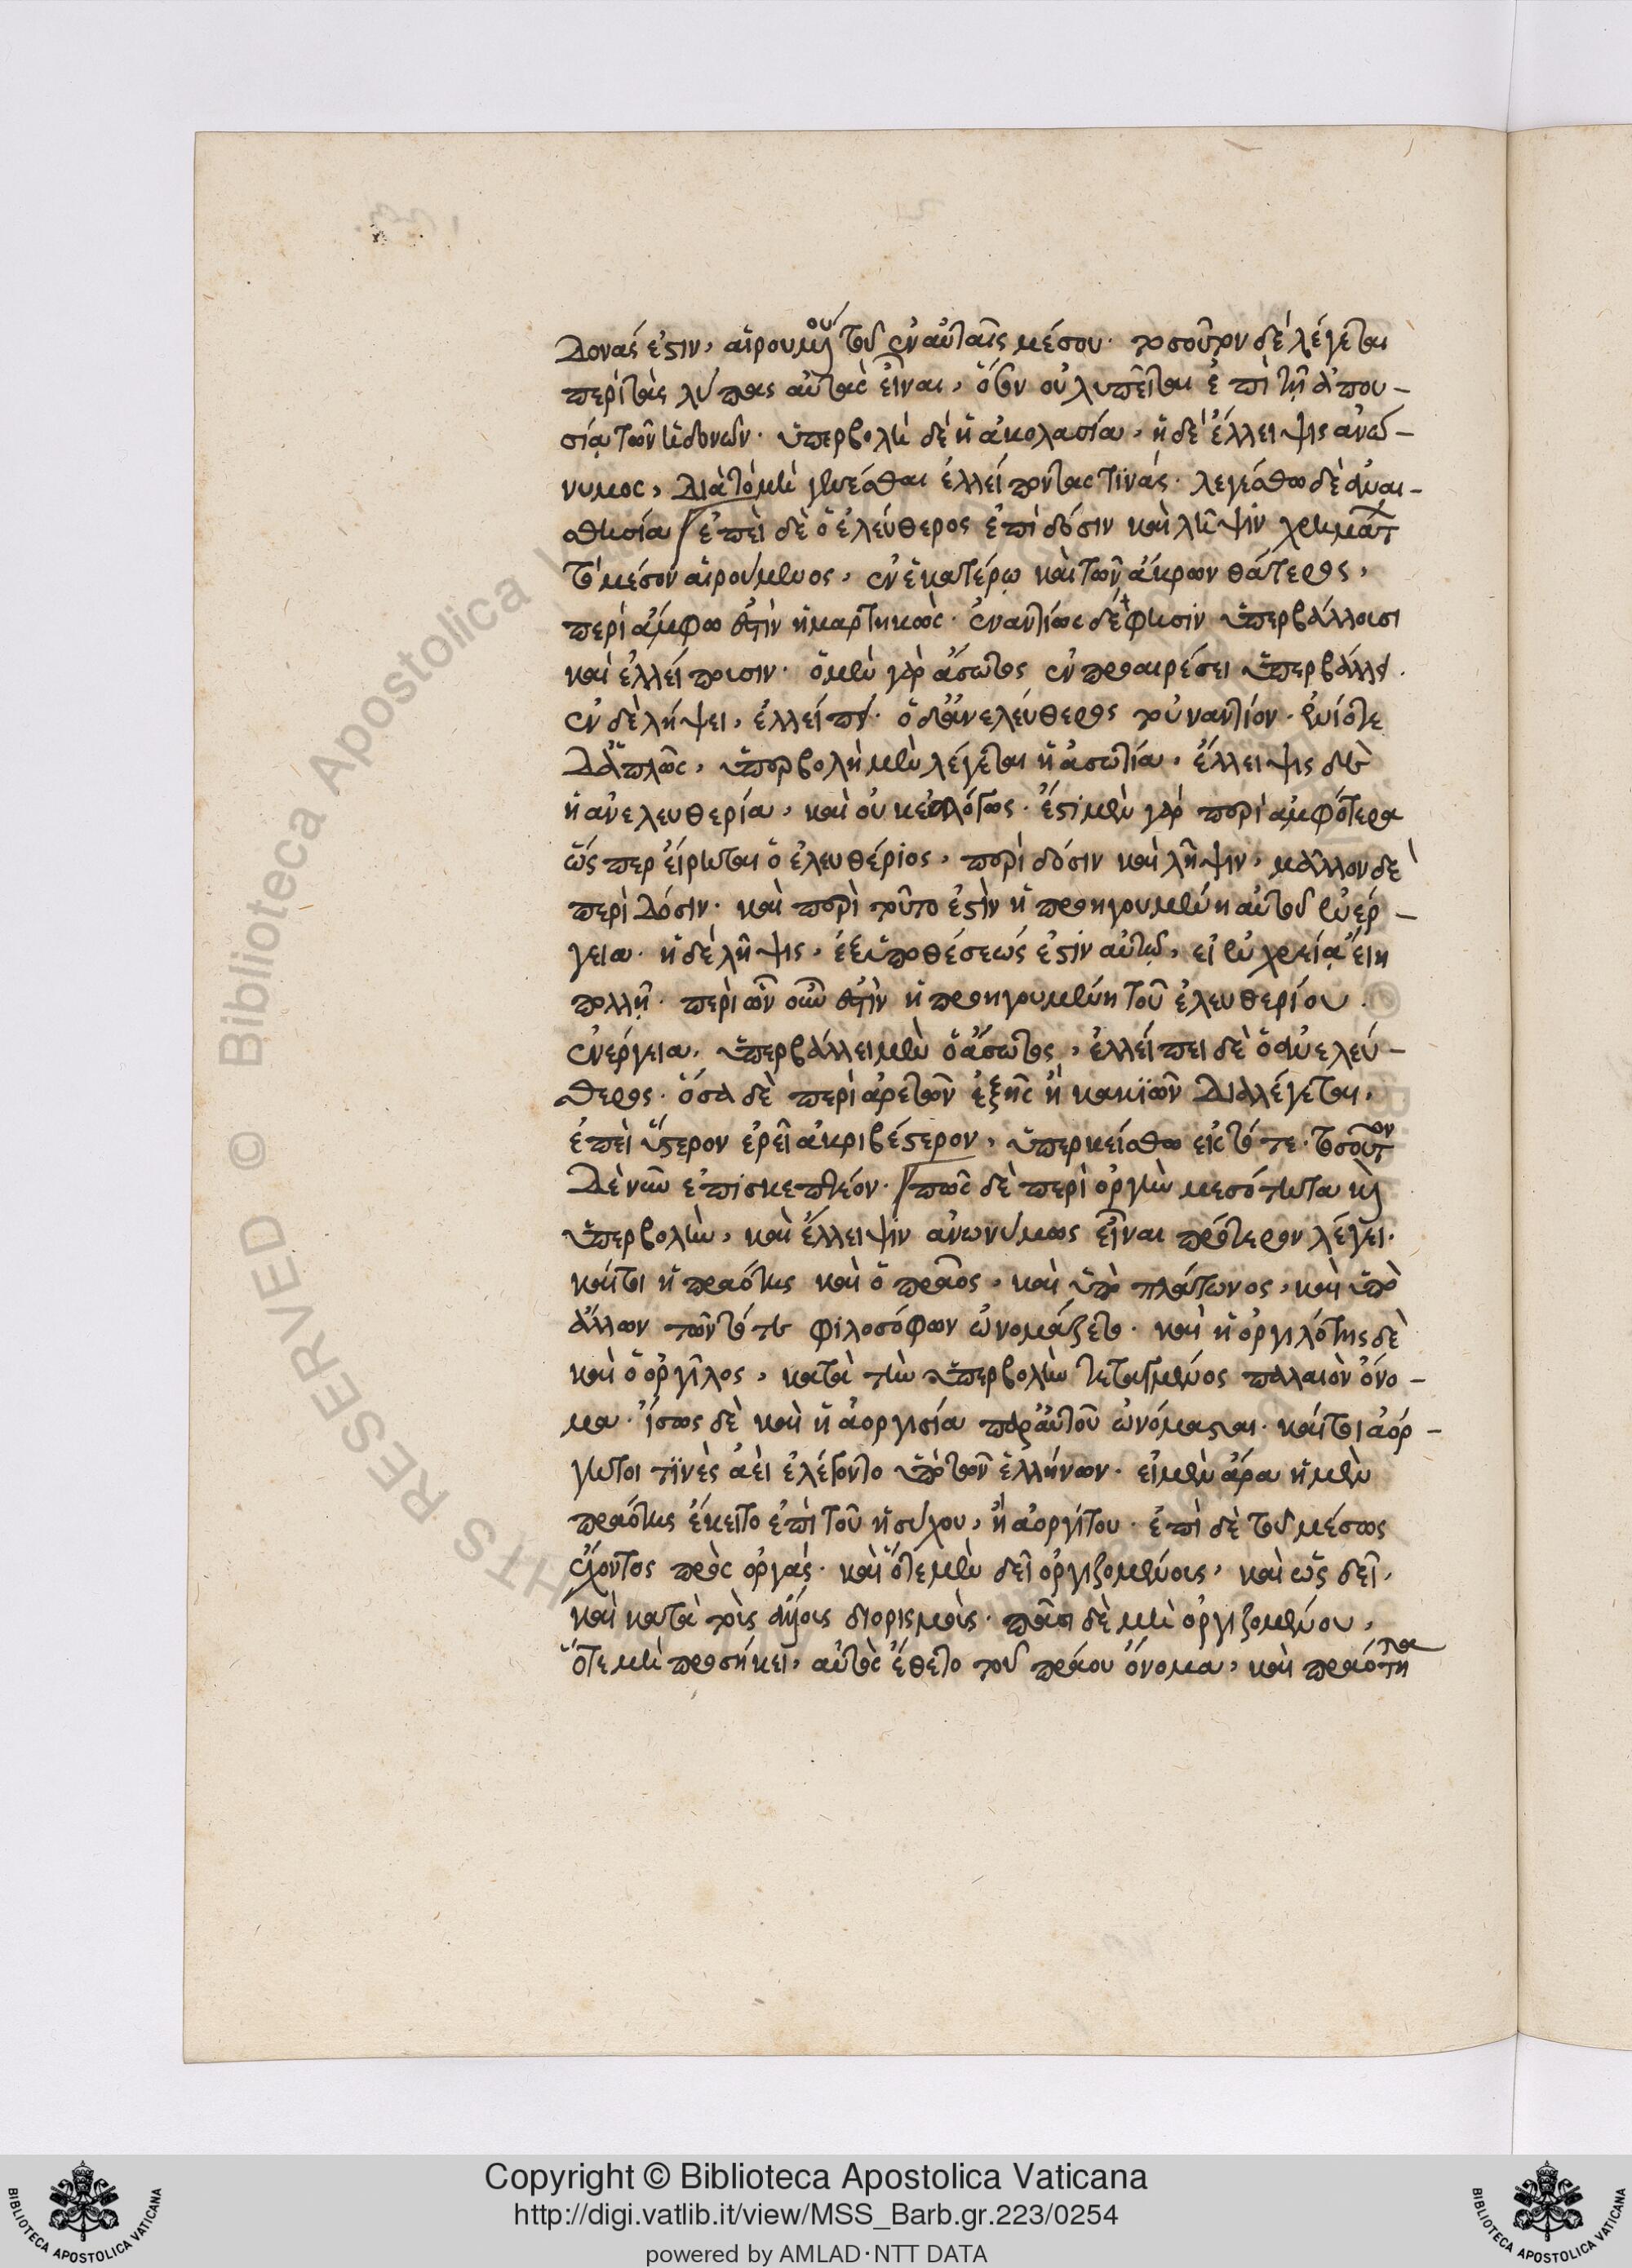 δονάς ἐστιν, αἱρουμένου τοῦ ἐν αὐταῖς μέσου· τοσοῦτον δὲ λέγεται
περὶ τὰς λύπας αὐτὰς εἶναι, ὅσον οὐ λυπεῖται ἐπὶ τῇ ἀπου-
σίᾳ τῶν ἡδονῶν· ὑπερβολὴ δὲ ἡ ἀκολασία, ἡ δὲ ἔλλειψις ἀνώ-
νυμος, διὰ τὸ μὴ γενέσθαι ἐλλείποντας τινάς· λεγέσθω δὲ ἀναι-
σθησία / ἐπεὶ δὲ ὁ ἐλεύθερος ἐπὶ δόσιν καὶ λῆψιν χρημάτων
τὸ μέσον αἱρούμενος, ἐν ἑκατέρῳ καὶ τῶν ἄκρων θάτερος,
περὶ ἄμφω ἐστὶν ἡμαρτηκώς· ἐναντίως δέ φησιν ὑπερβάλλουσι
καὶ ἐλλείπουσιν· ὁ μὲν γὰρ ἄσωτος ἐν προαιρέσει ὑπερβάλλει.
ἐν δὲ λήψει, ἐλλείπει· ὁ δ' ἀνελεύθερος τοὐναντίον· ἐνίοτε
δ' ἁπλῶς, ὑπερβολὴ μὲν λέγεται ἡ ἀσωτία, ἔλλειψις δὲ
ἡ ἀνελευθερία, καὶ οὐκ ἀλόγως· ἔστι μὲν γὰρ περὶ ἀμφότερα
ὥσπερ εἴρηται ὁ ἐλευθέριος, περὶ δόσιν καὶ λῆψιν, μᾶλλον δὲ
περὶ δόσιν· καὶ περὶ τοῦτο ἐστὶν ἡ προηγουμένη αὐτοῦ ἐνέρ-
γεια· ἡ δὲ λῆψις, ἐξ ὑποθέσεώς ἐστιν αὐτῷ, εἰ ἐν χρείᾳ εἴη
πολλῇ· περὶ ὧν οὖν ἐστὶν ἡ προηγουμένη τοῦ ἐλευθερίου.
ἐνέργεια, ὑπερβάλλει μὲν ὁ ἄσωτος, ἐλλείπει δὲ ὁ ἀνελεύ-
θερος· ὅσα δὲ περὶ ἀρετῶν ἑξῆς ἢ κακιῶν διαλέγεται,
ἐπεὶ ὕστερον ἐρεῖ ἀκριβέστερον, ὑπερκείσθω εἰς τότε· τοσοῦτον
δὲ νῦν ἐπισκεπτέον· / πῶς δὲ περὶ ὀργὴν μεσότητα καὶ
ὑπερβολὴν, καὶ ἔλλειψιν ἀνωνύμως εἶναι πρότερον λέγει·
καίτοι ἡ πραότης καὶ ὁ πρᾶος, καὶ ὑπὸ πλάτωνος, καὶ ὑπὸ
ἄλλων τῶν τότε φιλοσόφων ὠνομάζετο· καὶ ἡ ὀργιλότης δὲ
καὶ ὁ ὀργῖλος, κατὰ τὴν ὑπερβολὴν τεταγμένος παλαιὸν ὄνο-
μα· ἴσως δὲ καὶ ἡ ἀοργησία παρ' αὐτοῦ ὠνόμασται· καίτοι ἀόρ-
γητοι τινὲς ἀεὶ ἐλέγοντο ὑπὸ τῶν ἑλλήνων· εἰ μὲν ἄρα ἡ μὲν
πραότης ἔκειτο ἐπὶ τοῦ ἡσύχου, ἢ ἀοργήτου· ἐπὶ δὲ τοῦ μέσως
ἔχοντος πρὸς ὀργάς· καὶ ὅτε μὲν δεῖ ὀργιζομένοις, καὶ ὡς δεῖ,
καὶ κατὰ τοὺς ἄλλους διορισμούς· πᾶσι δὲ μὴ ὀργιζομένου,
ὅτε μὴ προσήκει, αὐτὸς ἔθετο τοῦ πράου ὄνομα, καὶ πραότητα
Copyright © Biblioteca Apostolica Vaticana
http://digi.vatlib.it/view/MSS_Barb.gr.223/0254
powered by AMLAD·NTT DATA